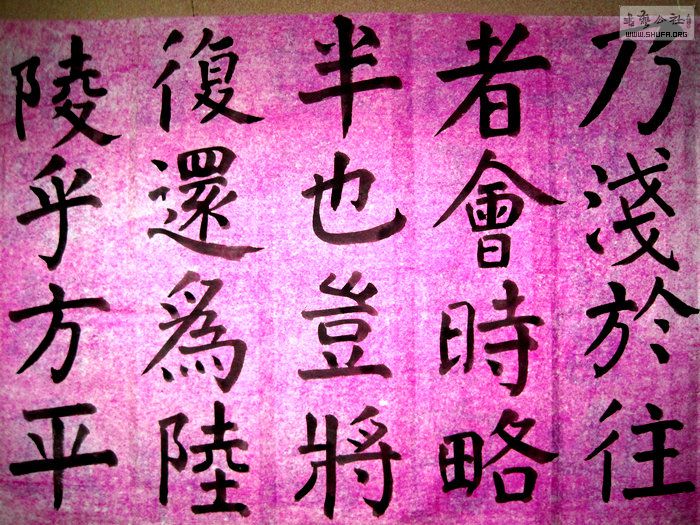 乃淺於往
者會時略
半也豈將
復還為陸
陵乎方平
WWW.SHUFA.ORG